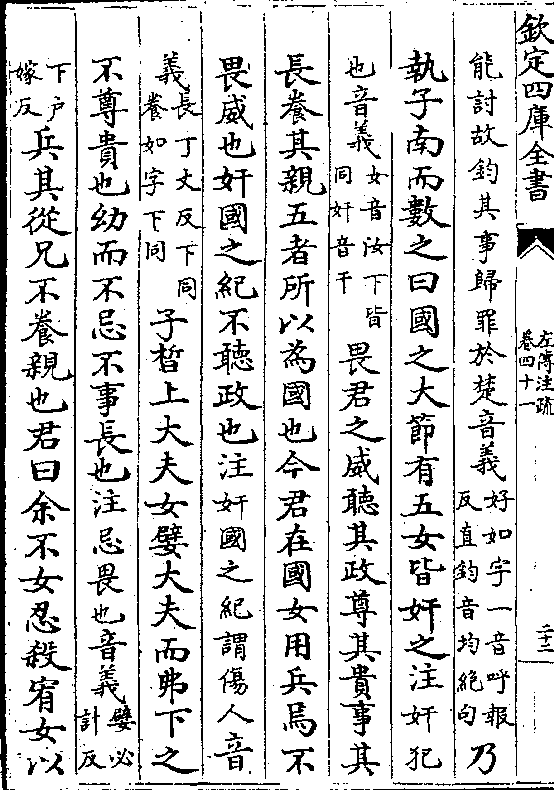 欽定四庫全書
左傳注疏
卷四十一
能討故鈞其事歸罪於楚音義好如字一音呼報反直鈞音均絶句乃
執子南而數之曰國之大節有五女皆奸之注奸犯
也音義女音汝下皆同奸音干畏君之威聽其政尊其貴事其
長養其親五者所以為國也今君在國女用兵焉不
畏威也奸國之紀不聽政也注奸國之紀謂傷人音
義長丁丈反下同養如字下同子晳上大夫女嬖大夫而弗下之
不尊貴也幼而不忌不事長也注忌畏也音義嬖必計反
下户嫁反兵其從兄不養親也君曰余不女忍殺宥女以